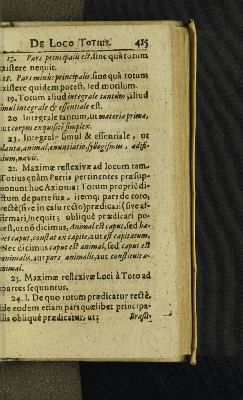 DE LOCO TOTIUS. 415
17. Pars principalis est, sine quâ totum
existere nequit.
18. Pars minus principalis, sine quâ totum
existere quidem potest, sed mutilum.
19. Totum aliud integrale tantum, aliud
simul integrale & essentiale est.
20. Integrale tantum, ut materia prima,
aut corpus exquisitè simplex.
Integrale simul & essentiale, ut
planta, animal, enuntiatio, syllogismus, ædifi-
cium, navis.
Maximæ reflexivæ ad locum tam
Totius quàm Partis pertinentes præsup-
ponunt hoc Axioma: Totum propriè di-
ctum de parte sua, itemq; pars de toto,
rectè (sive in casu recto) prædicari (sive af-
firmari) nequit; obliquè prædicari po-
test, ut nô dicimus, Animal est caput, sed ha-
bet caput, constat ex capite: aut est capitatum.
Nec dicimus caput est animal, sed caput est
animalis, aut pars animalis, aut constituit a-
nimal.
23. Maximæ reflexivæ Loci à Toto ad
partes sequuntur.
24. I. De quo totum prædicatur rectè,
de eodem etiam pars quælibet principa-
lis obliquè prædicatur, ut: